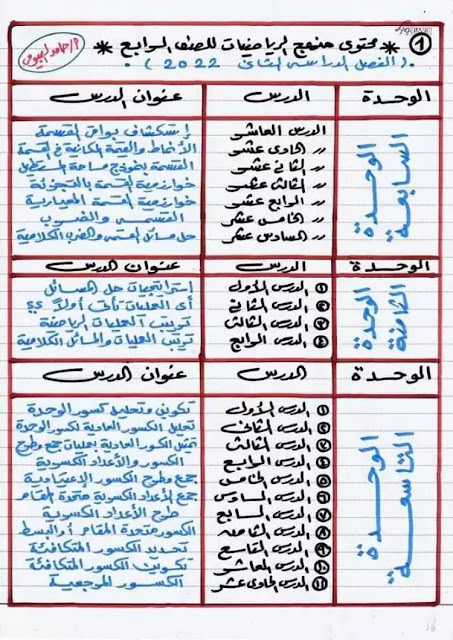 ① * محتوى منهج الرياضيات للصف الرابع *
( الفصل الدراسى الثانى 2022 )
الوحدة الدرس عنوان الدرس
الوحدة السابعة
الدرس العاشر إستكشاف بواقى القسمة
〃 الحادى عشر الأنماط والقيمة المكانية فى القسمة
〃 الثانى عشر القسمة بنموذج مساحة المستطيل
〃 الثالث عشر خوارزمية القسمة بالتجزئة
〃 الرابع عشر خوارزمية القسمة المعيارية
〃 الخامس عشر القسمة والضرب
〃 السادس عشر حل مسائل القسمة والضرب الكلامية
الوحدة الدرس عنوان الدرس
الوحدة الثامنة
① الدرس الأول إستراتيجيات حل المسائل
② الدرس الثانى أى العمليات تأتى أولاً ؟؟
③ الدرس الثالث ترتيب العمليات الرياضية
④ الدرس الرابع ترتيب العمليات والمسائل الكلامية
الوحدة الدرس عنوان الدرس
الوحدة التاسعة
① الدرس الأول تكوين وتحليل كسور الوحدة
② الدرس الثانى تحليل الكسور العادية لكسور الوحدة
③ الدرس الثالث تمثيل الكسور العادية بعمليات جمع وطرح
④ الدرس الرابع الكسور والأعداد الكسرية
⑤ الدرس الخامس جمع وطرح الكسور الإعتيادية
⑥ الدرس السادس جمع الأعداد الكسرية متحدة المقام
⑦ الدرس السابع طرح الأعداد الكسرية
⑧ الدرس الثامن الكسور متحدة المقام أو البسط
⑨ الدرس التاسع تحديد الكسور المتكافئة
⑩ الدرس العاشر تكوين الكسور المتكافئة
⑪ الدرس الحادى عشر الكسور المرجعية